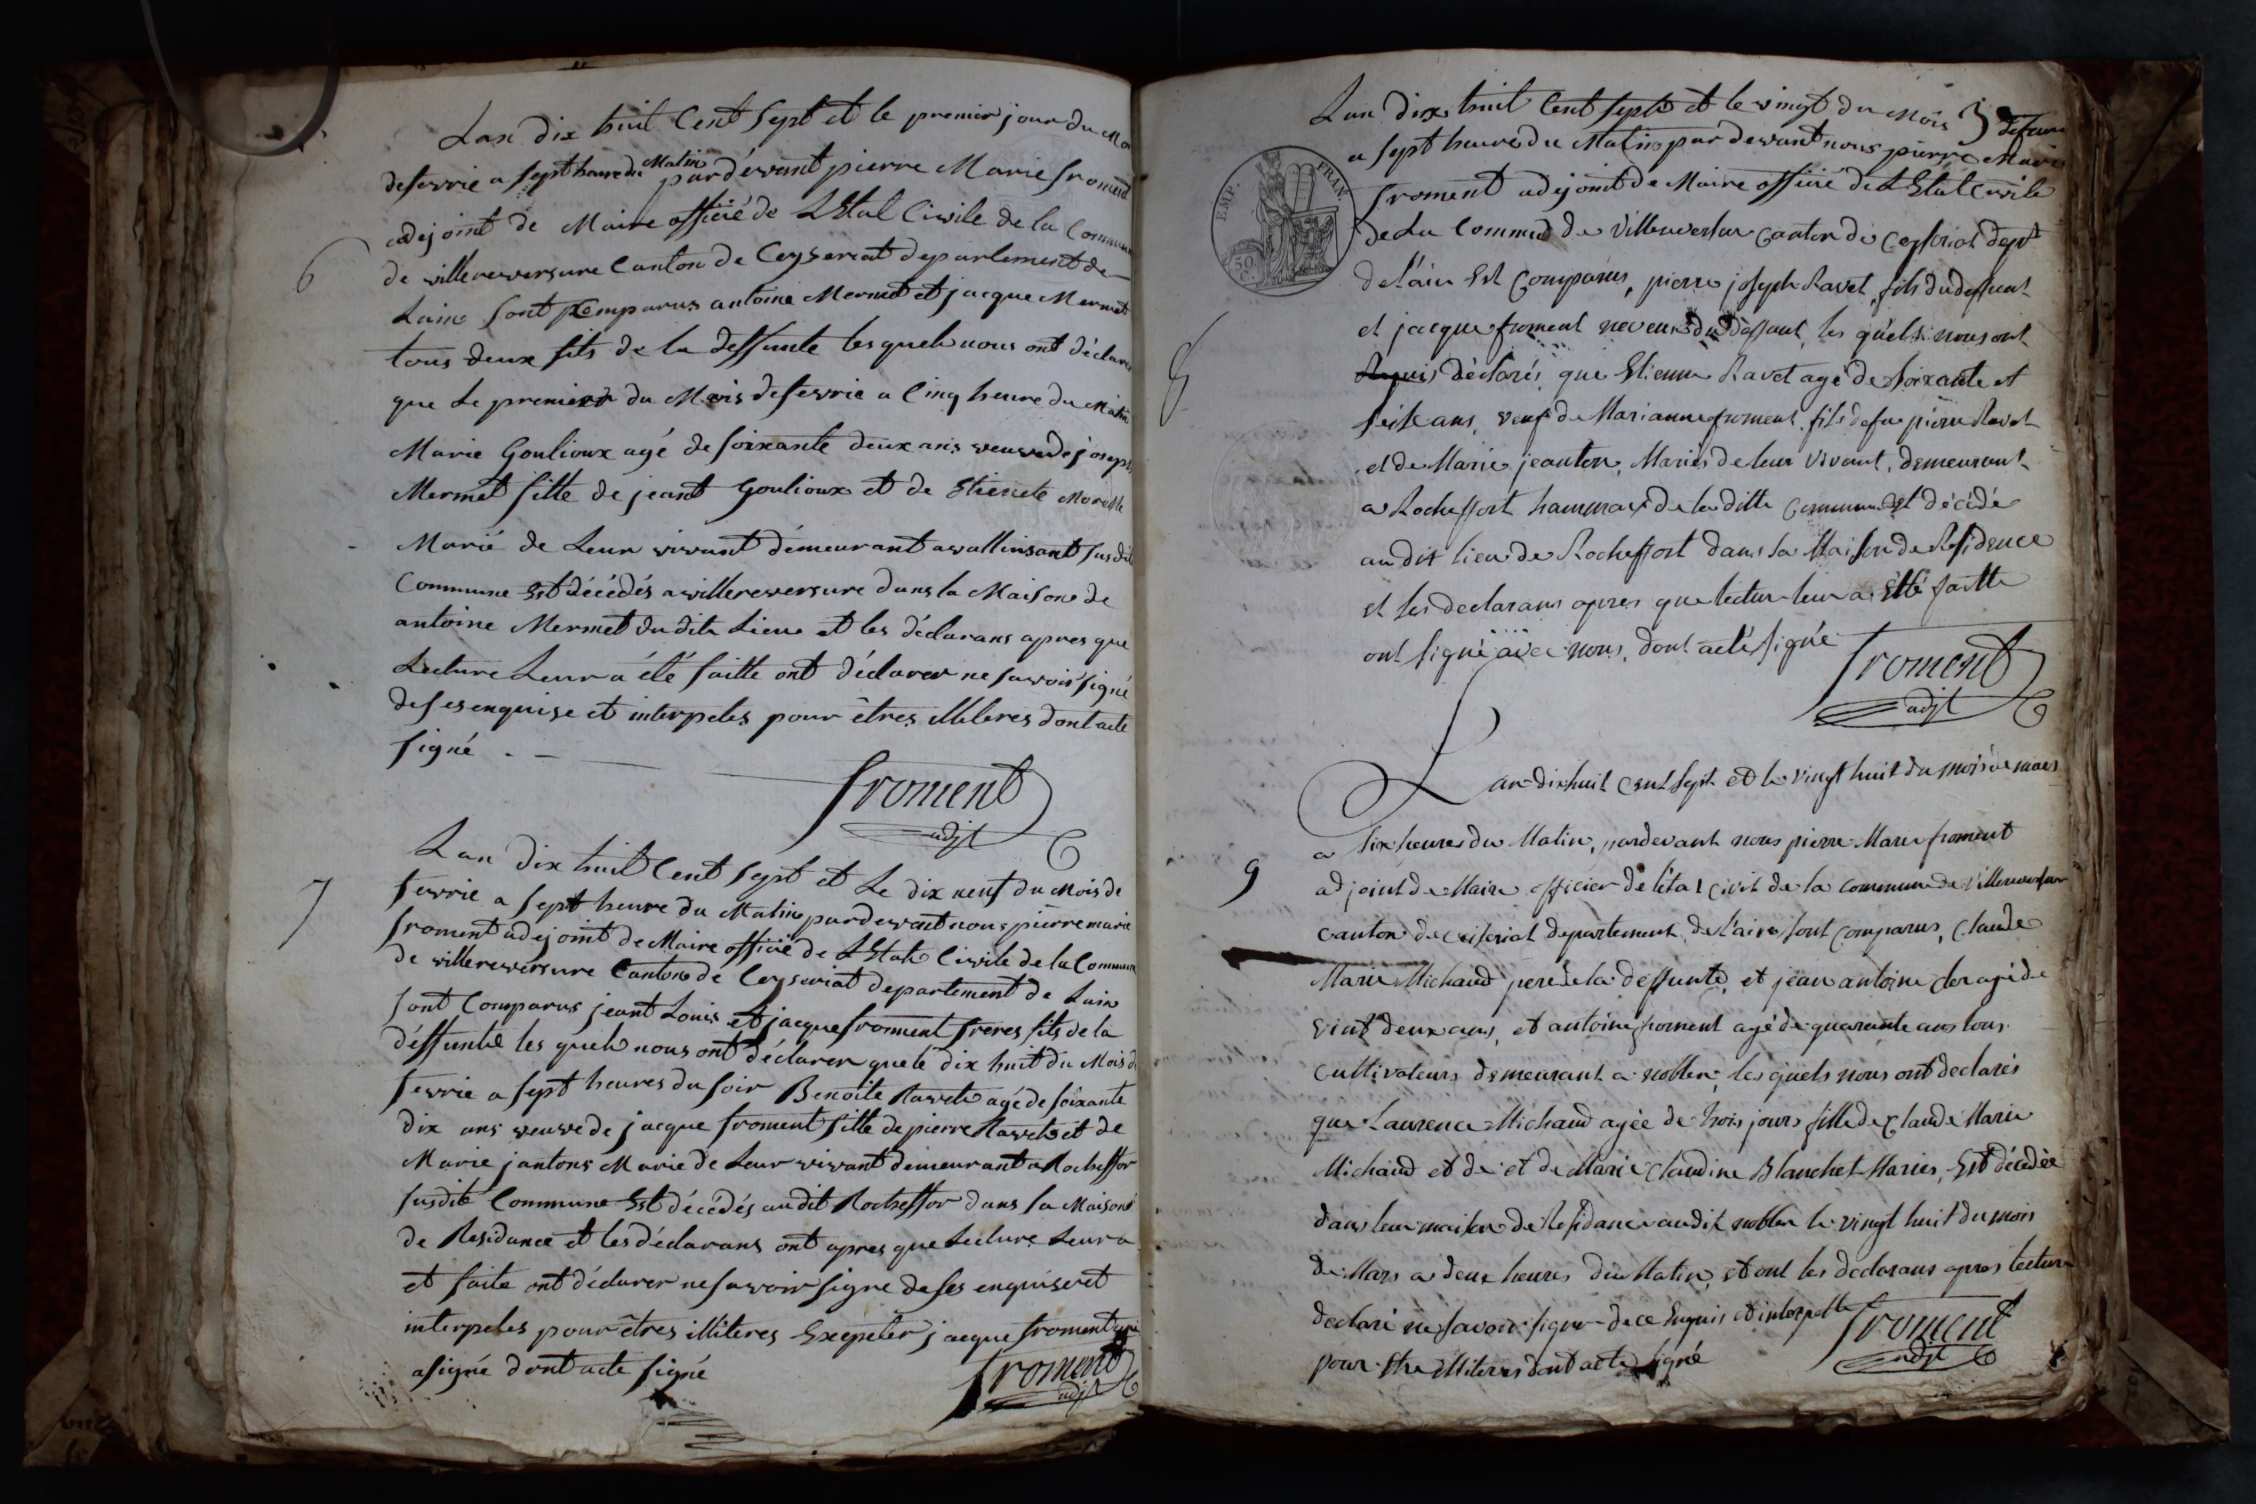 6
Lan dix huit Cent Sept et le premier jour du Mo
defevrie a sept heure du Matin pardevant pierre Marie froment
adejoint de Maire officié de LEtal Civile de la Commun
de villereversure Canton de Ceyseriat departement de
Lain Sont Comparus antoine Mermet et jacque Mermet
tous deux fils de la deffunte les quels nous ont déclarer
que Le premier du Mois defevrie a Cinq heure du Matin
Marie Goulioux agé de soixante deux ans veuve de joseph
Mermet fille de jeant Goulioux et de Etienete
Marié de Leur vivant demeurant a vallinsant susdit
Commune Est décédés a villereversure dans la Maison de
antoine Mermet du dit Lieu et les déclarans apres que
Lecture Leur a été faitte ont déclarer ne savoir signé
de ses enquise et interpeles pour êtres illiteres dont acte
signé
froment
adjt
7
Lan dix huit Cent Sept et Le dix neuf du Mois de
fevrie a sept heure du Matin pardevant nous pierre marie
froment adejoint de Maire officié de LEtat Civile de la Commun
de villereversure Canton de Ceyseriat departement de Lain
sont Comparus jeant Louis et jacque froment freres fils de la
déffunte les quels nous ont déclarer que le dix huit du Mois d
fevrie a sept heures du soir Benoite Ravet agé de soixante
dix ans veuve de jacque froment fille de pierre Ravet et de
Marie jantons Marie de Leur vivant demeurant a Rocheffor
susdite Commune Est décédés au dit Rocheffor dans sa Maison
de Residance et les déclarans ont apres que Lecture Leur a
et faite ont déclarer ne savoir signe de ses enquise et
interpeles pour êtres illiteres Exepeter jacque froment qui
a signé dont acte signé
froment
adjt
3
Lan dix huit Cent Sept et le vingt du Mois defevrie
a sept heure du Matin par devant nous pierre Marie
froment adejoint de Maire officié de LEtat Civile
EMP. FRAN.
50
De La Commune de Villereversur Canton de Ceyseriat dept
8
de l'ain Est Comparus, pierre joseph Ravet, fils du deffunt
et jacque froment neveur du deffunt, les quels nous ont
Requis déclarés, que Etienne Ravet agé de soixante et
ans, veuf de Marianne froment, fils de feu pierre Ravet
et de Marie jeanton, Mariés de leur Vivant, demeurant
a Rocheffort hammax de la ditte Commune Est décédé
au dit lieu de Rocheffort dans sa Maison de Residence
et les declarans apres que lecture leur a Etté faitte
ont signé avec nous, dont acte signé
froment
adjt
9
Lan dix huit Cent Sept et le vingt huit du mois de mars
a six heures du Matin, pardevant nous pierre Marie froment
adjoint de Maire officier de l'état civil de la commune de Villereversur
canton de ceiseriat departement de l'ain sont comparus, Claude
Marie Michaud pere de la deffunte, et jean antoine Cler agé de
vint deux ans, et antoine froment agé de quarante ans tous
cultivateurs demeurant a noblen, les quels nous ont declarés
que Laurence Michaud agée de trois jours fille de Claude Marie
Michaud et de et de Marie Claudine Blanchet Maries, Est décedée
dans leur maison de Residance audit noblen le vingt huit du mois
de Mars a deux heures du Matin, et ont les declarans apres lecture
declaré ne savoir signer de ce Enquis et interpelle
pour Etre illiteres dont acte signé
froment
adjt